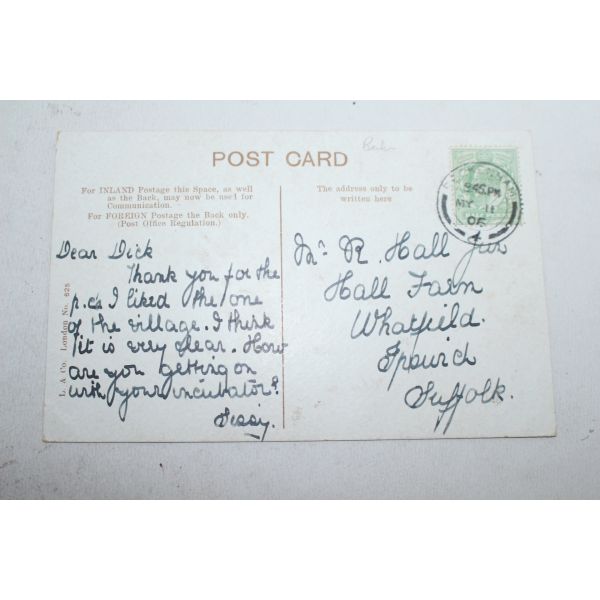 POST CARD
For INLAND Postage this Space, as well
as the Back, may now be used for
Communication.
For FOREIGN Postage the Back only.
(Post Office Regulation.)
The address only to be
written here
9.45 PM
MY 11
06
4
Dear Dick
Thank you for the
p.c's I liked the one
of the village. I think
it is very clear. How
are you getting on
with your incubator?
Sissy.
Mr R. Hall Jun
Hall Farm
Whatfield.
Ipswich
Suffolk.
L. & Co. London No. 625